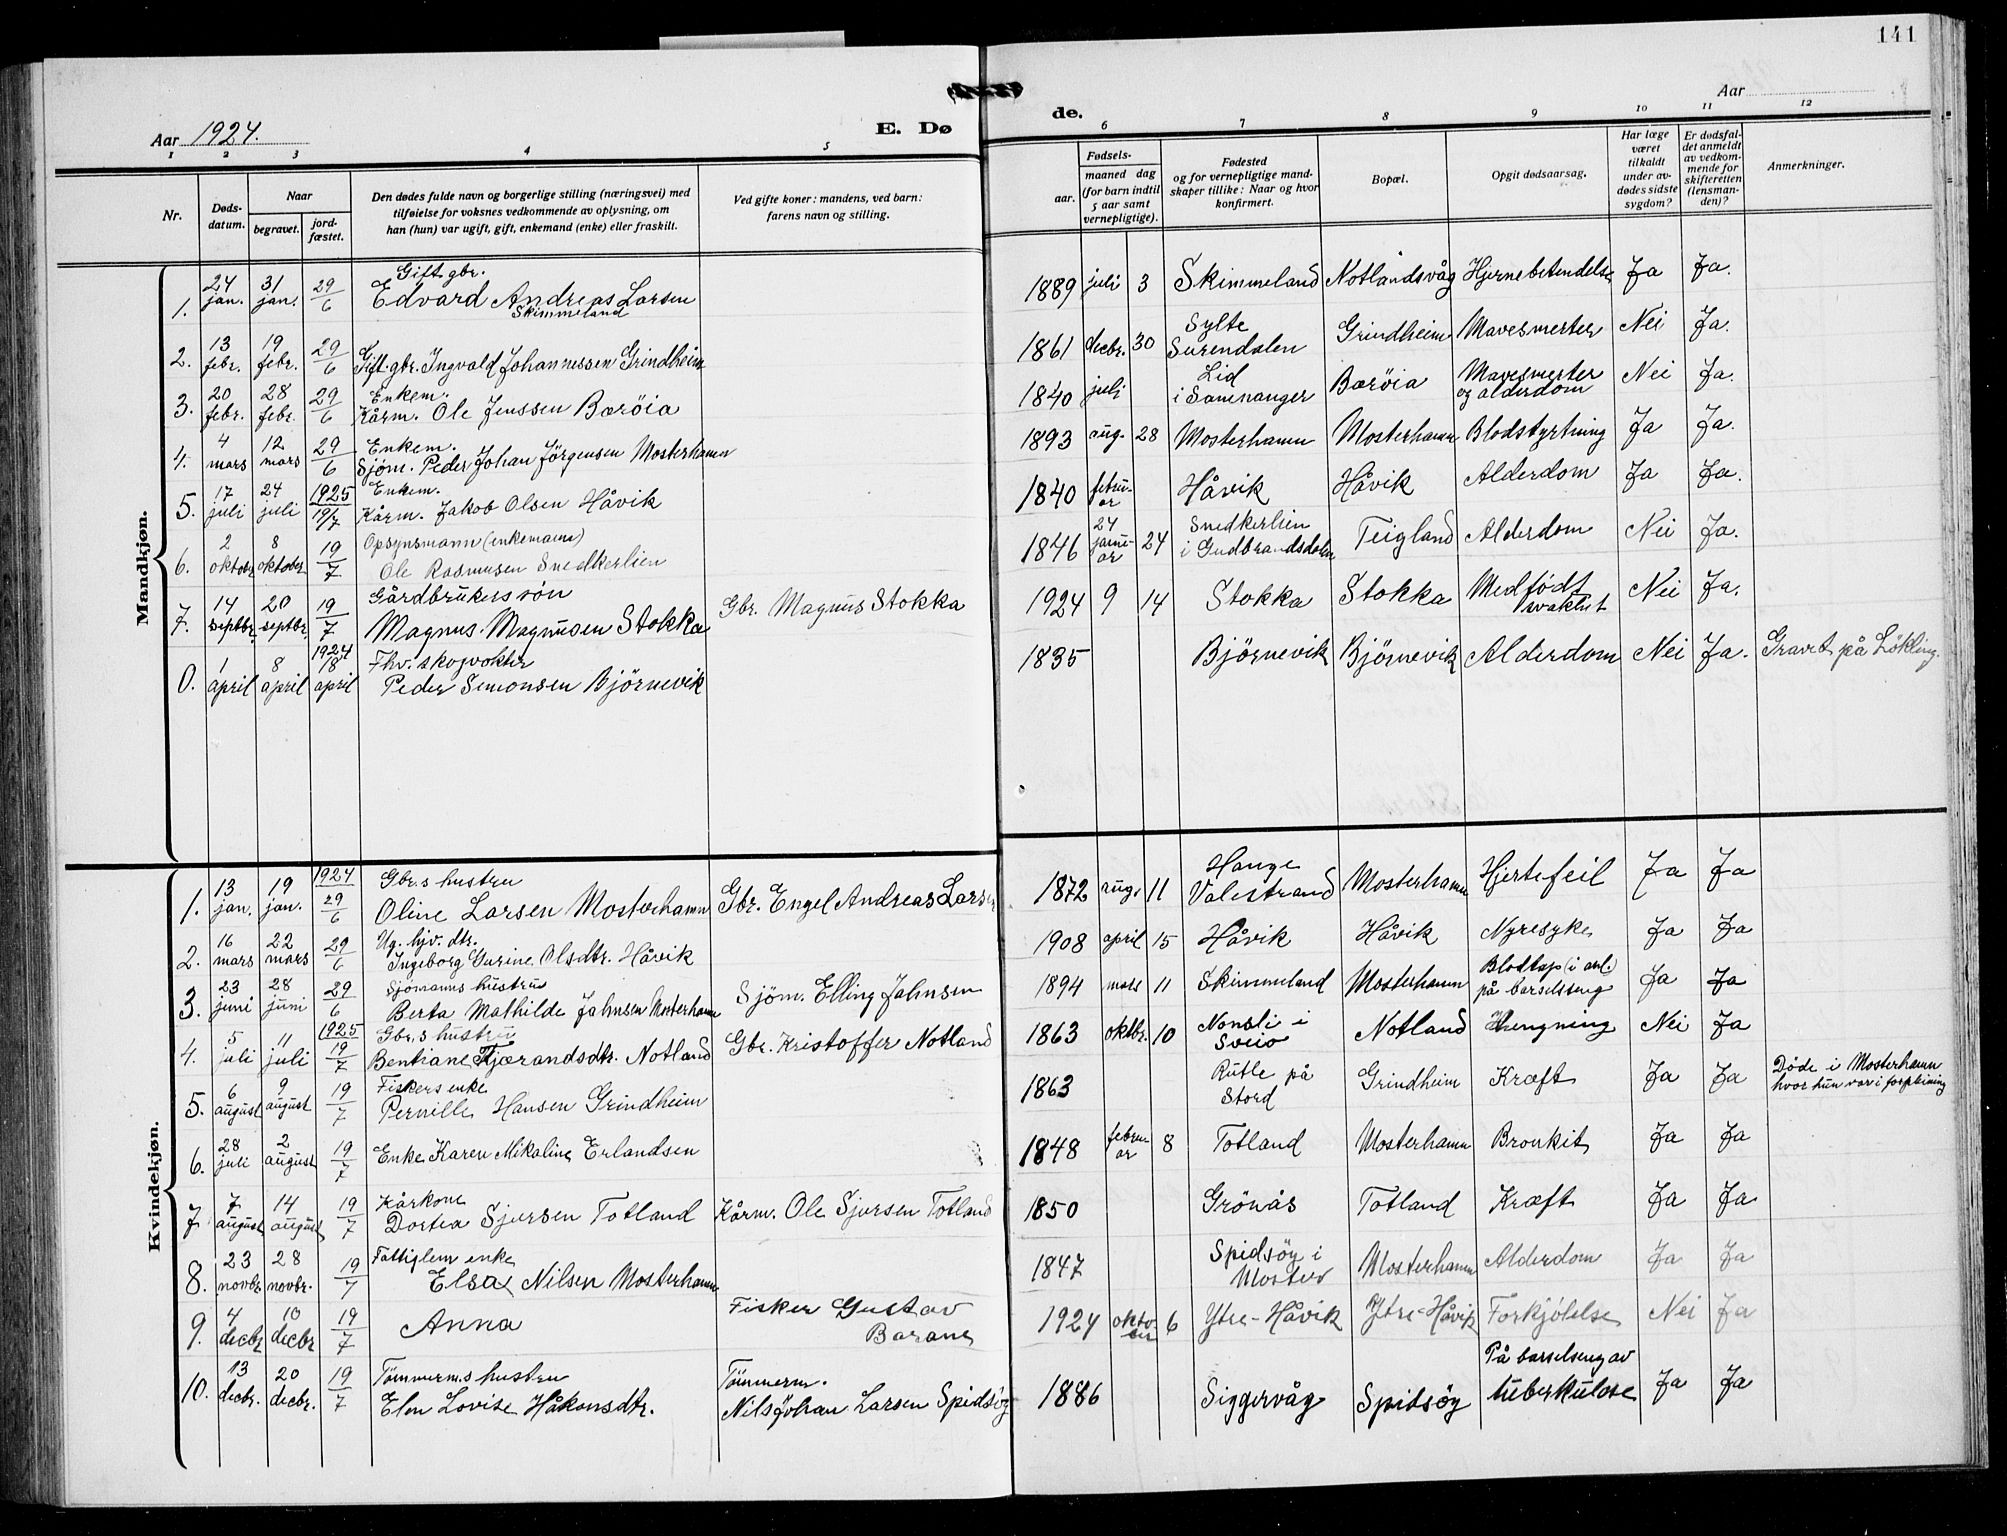 141
Aar 1924.
E. Dø
de.
Aar
1 2 3 4 5 6 7 8 9 10 11 12
Nr.
Døds-
datum.
Naar
begravet.
jord-
fæstet.
Den dødes fulde navn og borgerlige stilling (næringsvei) med
tilføielse for voksnes vedkommende av oplysning, om
han (hun) var ugift, gift, enkemand (enke) eller fraskilt.
Ved gifte koner: mandens, ved barn:
farens navn og stilling.
Fødsels-
aar.
maaned dag
(for barn indtil
5 aar samt
vernepligtige).
Fødested
og for vernepligtige mand-
skaper tillike: Naar og hvor
konfirmert.
Bopæl.
Opgit dødsaarsag.
Har læge
været
tilkaldt
under av-
dødes sidste
sygdom?
Er dødsfal-
det anmeldt
av vedkom-
mende for
skifteretten
(lensman-
den)?
Anmerkninger.
Mandkjøn.
1. 24 jan. 31 jan. 29/6 Gift gbr.
Edvard Andreas Larsen
Skimmeland
1889 juli 3 Skimmeland Notlandsvåg Hjernebetendelse Ja Ja.
2. 13 febr. 19 febr. 29/6 Gift. gbr. Ingvald Johannessen Grindheim
1861 decbr. 30 Sylte
Surendalen Grindheim Mavesmerter Nei Ja.
3. 20 febr. 28 febr. 29/6 Enkem.
Kårm. Ole Jenssen Barøia
1840 juli Lid
i Samnanger Barøia Mavesmerter
og alderdom Nei Ja.
4. 4 mars 12 mars 29/6 Enkem.
Sjøm. Peder Johan Jørgensen Mosterhamn
1893 aug. 28 Mosterhamn Mosterhamn Blodstyrtning Ja Ja.
5. 17 juli 24 juli 1925 19/7 Enkem.
Kårm. Jakob Olsen Håvik
1840 febru-
ar Håvik Håvik Alderdom Ja Ja.
6. 2 oktober 8 oktober 19/7 Opsynsmann (enkemann)
Ole Rasmusen Snedkerlien
1846 24 janu-
ar 24 Snedkerlien
i Gudbrandsdalen Teigland Alderdom Nei Ja.
7. 14 septbr. 20 septbr. 19/7 Gårdbrukers søn
Magnus Magnusen Stokka Gbr. Magnus Stokka
1924 9 14 Stokka Stokka Medfødt
svakhet Nei Ja.
0. 1 april 8 april 1924 18 april Fhv. skogvokter
Peder Simonsen Bjørnevik
1835 Bjørnevik Bjørnevik Alderdom Nei Ja. Gravet på Løkling.
Kvindekjøn.
1. 13 jan. 19 jan. 1924 29/6 Gbr.s hustru
Oline Larsen Mosterhamn Gbr. Engel Andreas Larsen
1872 aug. 11 Hauge
Valestrand Mosterhamn Hjertefeil Ja Ja
2. 16 mars 22 mars 29/6 Ug. hjv. dtr.
Ingeborg Gurine Olsdtr. Håvik
1908 april 15 Håvik Håvik Nyresyke Ja Ja
3. 23 juni 28 juni 29/6 Sjømanns hustru
Berta Mathilde Jahnsen Mosterhamn Sjøm. Elling Jahnsen
1894 mars 11 Skimmeland Mosterhamn Blodtap (i anl.)
på barselseng Ja Ja
4. 5 juli 11 juli 1925 19/7 Gbr.s hustru
Bentiane Kjærandsdtr. Notland Gbr. Kristoffer Notland
1863 oktbr. 10 Nonsli i
Sveio Notland Hengning Nei Ja
5. 6 august 9 august 19/7 Fiskers enke
Pernille Hansen Grindheim
1863 Rutle på
Stord Grindheim Kræft Ja Ja Døde i Mosterhamn
hvor hun var i forpleining
6. 28 juli 2 august 19/7 Enke Karen Mikaline Erlandsen
1848 febru-
ar 8 Totland Mosterhamn Bronkit Ja Ja
7 7 august 14 august 19/7 Kårkone
Dortea Sjursen Totland Kårm. Ole Sjursen Totland
1850 Grönås Totland Kræft Ja Ja
8. 23 novbr 28 novbr. 19/7 Fattiglem enke
Elsa Nilsen Mosterhamn
1847 Spidsöy i
Moster Mosterhamn Alderdom Ja Ja
9. 4 decbr 10 decbr 19/7 Anna Fisker Gustav
Barane
1924 okto-
ber 6 Ytre-Håvik Ytre-Håvik Forkjølelse Nei Ja
10. 13 decbr. 20 decbr. 19/7 Tömmerm.s hustru
Elen Lovise Håkonsdtr. Tömmerm.
Nils Johan Larsen Spidsöy
1886 Siggervåg Spidsöy På barselseng av
tuberkulose Ja Ja